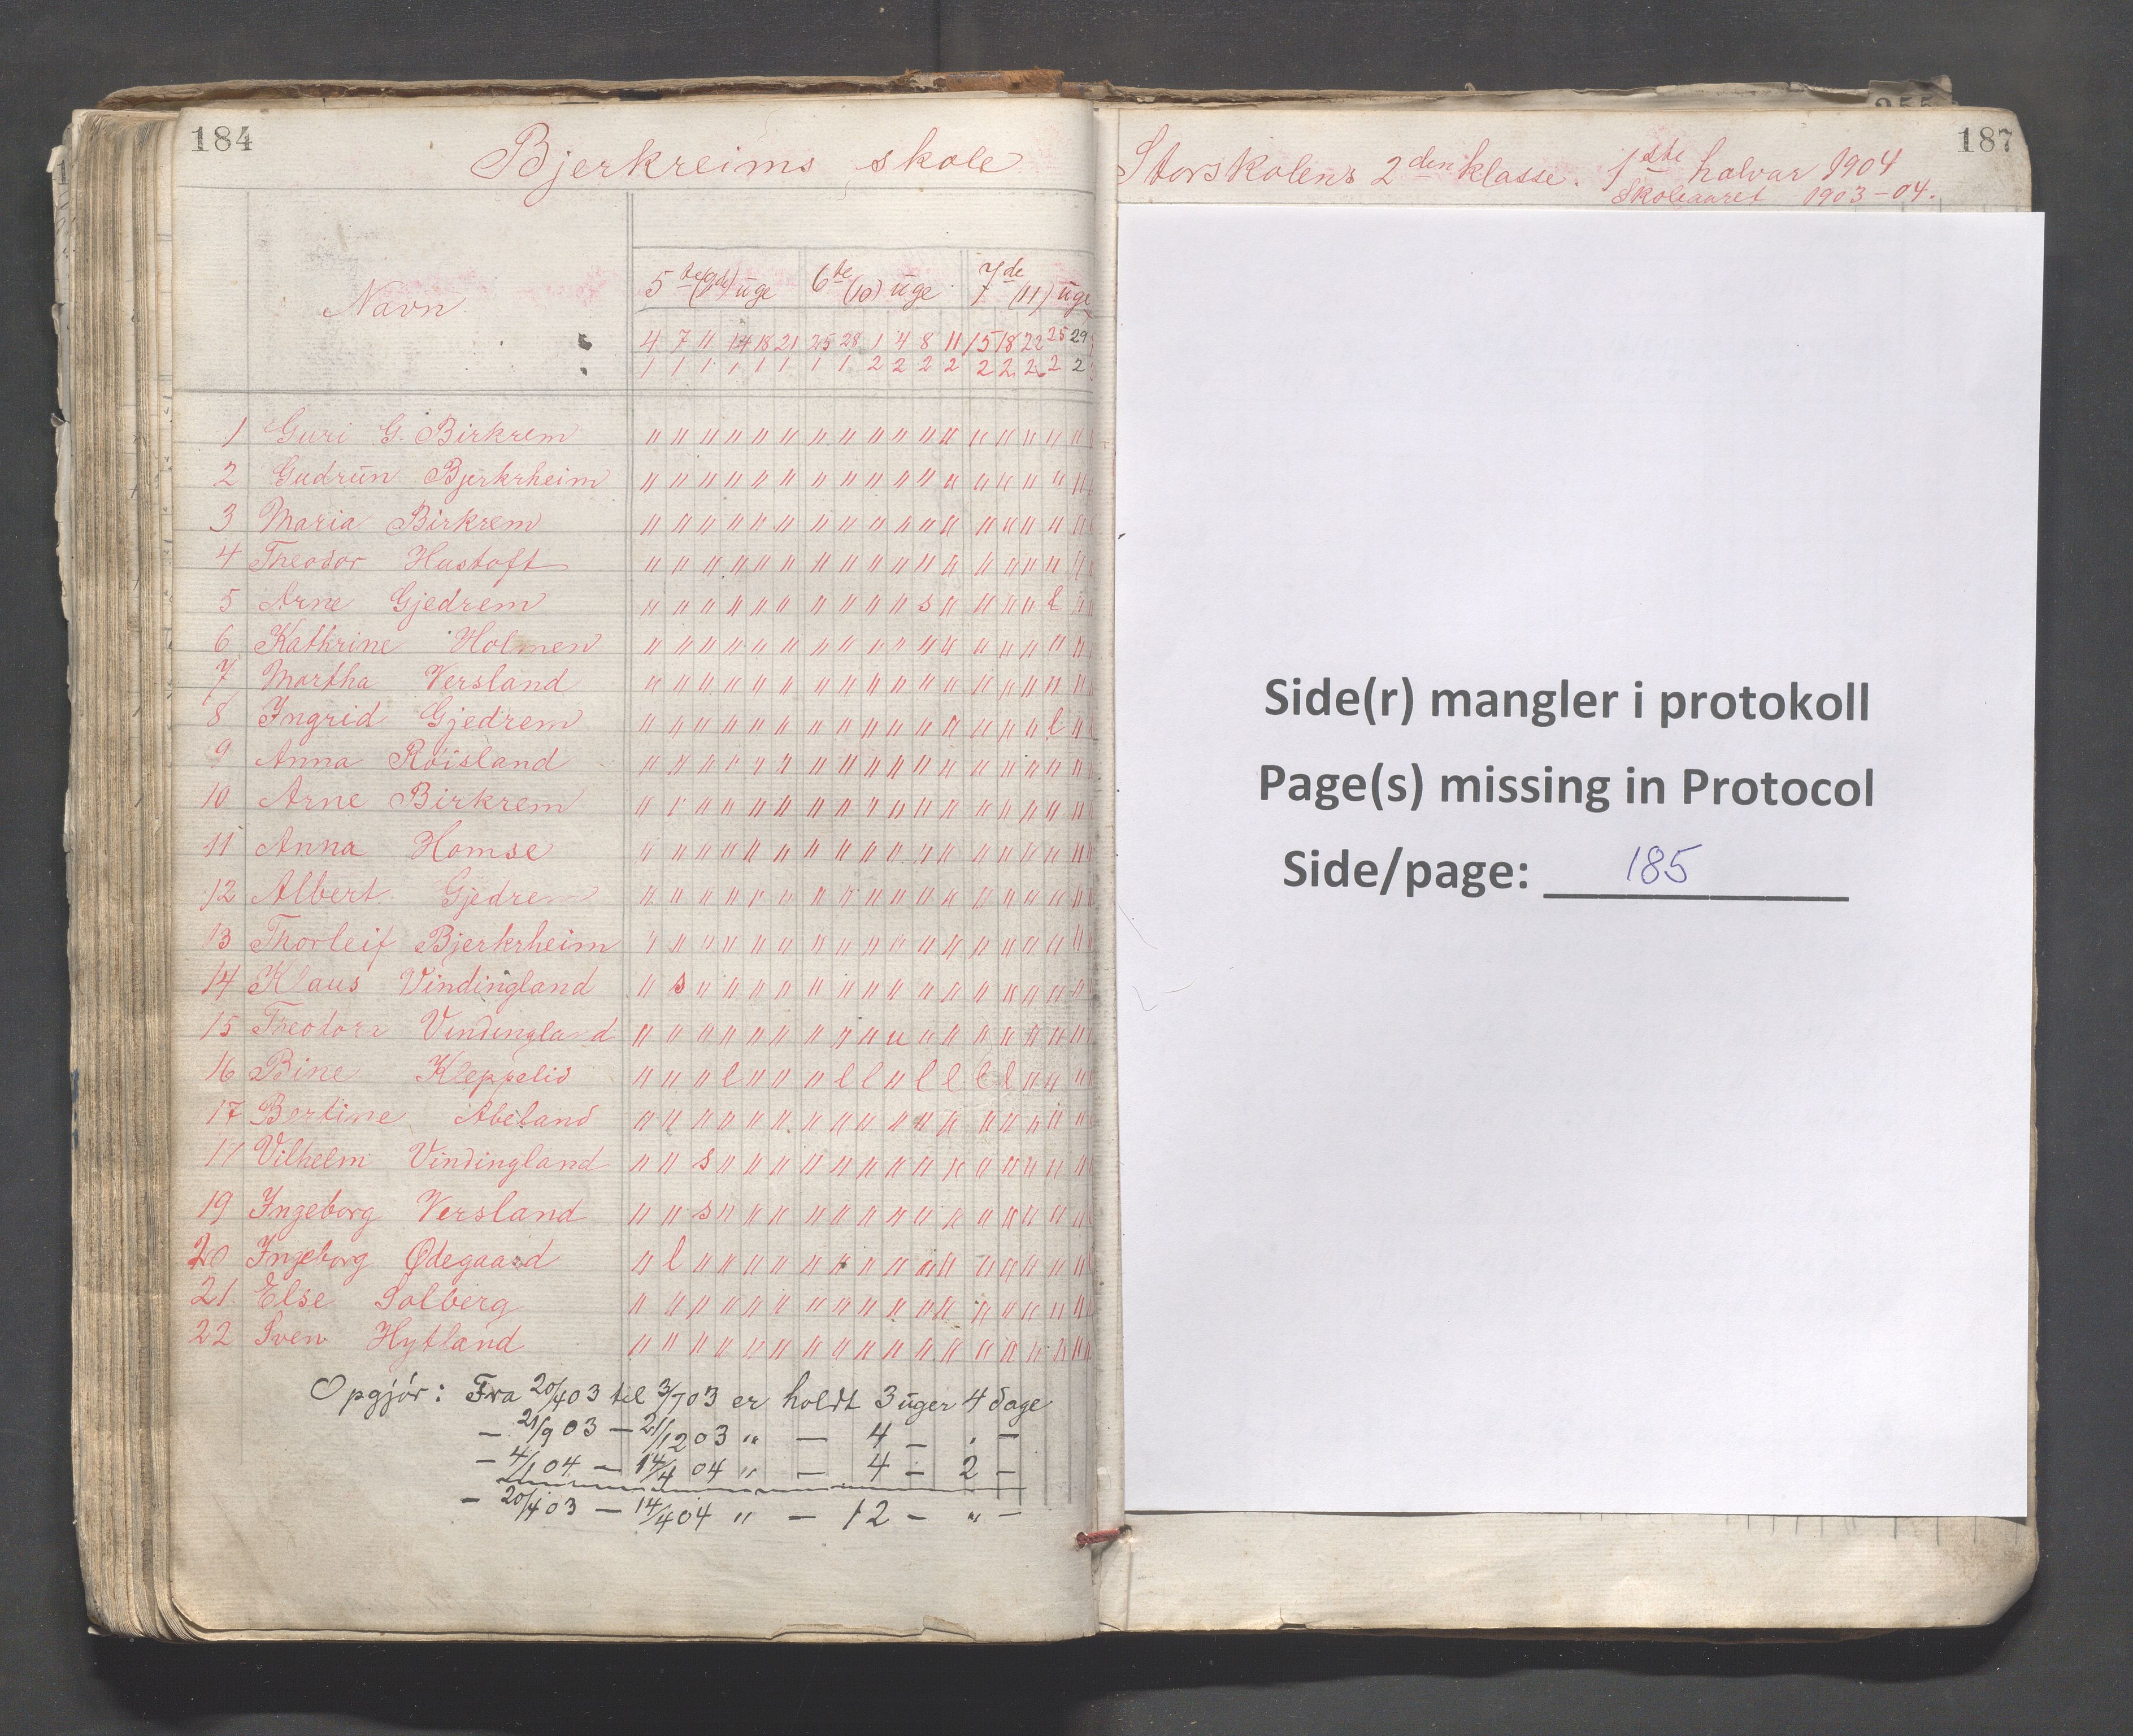 184
Bjerkreims skole
Navn
5te (9de) uge 6te (10) uge 7de (11) uge
4 7 11 14 18 21 25 28 1 4 8 11 15 18 22 25 29
1 1 1 1 1 1 1 1 2 2 2 2 2 2 2 2 2
1 Guri G. Birkrem " " " " " " " " " " " " " " " " "
2 Gudrun Bjerkrheim " " " " " " " " " " " " " " " " "
3 Maria Birkrem " " " " " " " " " " " " " " " " "
4 Theodor Hustoft " " " " " " " " " " " " " " " " "
5 Arne Gjedrem " " " " " " " " " " s " " " " l "
6 Kathrine Holmen " " " " " " " " " " " " " " " " "
7 Martha Versland " " " " " " " " " " " " " " " " "
8 Ingrid Gjedrem " " " " " " " " " " " " " " " l "
9 Anna Röisland " " " " " " " " " " " " " " " " "
10 Arne Birkrem " " " " " " " " " " " " " " " " "
11 Anna Homse " " " " " " " " " " " " " " " " "
12 Albert Gjedrem " " " " " " " " " " " " " " " " "
13 Thorleif Bjerkrheim " " " " " " " " " " " " " " " " "
14 Klaus Vindingland " s " " " " " " " " " " " " " " "
15 Theodor Vindingland " " " " " " " " " u " " " " " " "
16 Bine Kleppelid " " " l " " " l l " l l l l " " "
17 Bertine Abeland " " " " " " " " " " " " " " " " "
17 Vilhelm Vindingland " " s " " " " " " " " " " " " " "
19 Ingeborg Versland " " s " " " " " " " " " " " " " "
20 Ingeborg Ødegaard " l " " " " " " " " " " " " " " "
21. Else Solberg " " " " " " " " " " " " " " " " "
22 Sven Hytland " " " " " " " " " " " " " " " " "
Opgjör: Fra 20/4 03 til 3/7 03 er holdt 3 uger 4 dage
— 21/9 03 — 21/12 03 " — 4 — . —
— 4/1 04 — 14/4 04 " — 4 — 2 —
— 20/4 03 — 14/4 04 " — 12 — " —
187
Storskolens 2den klasse. 1ste halvar 1904
Skoleaaret 1903–04.
Side(r) mangler i protokoll
Page(s) missing in Protocol
Side/page: 185